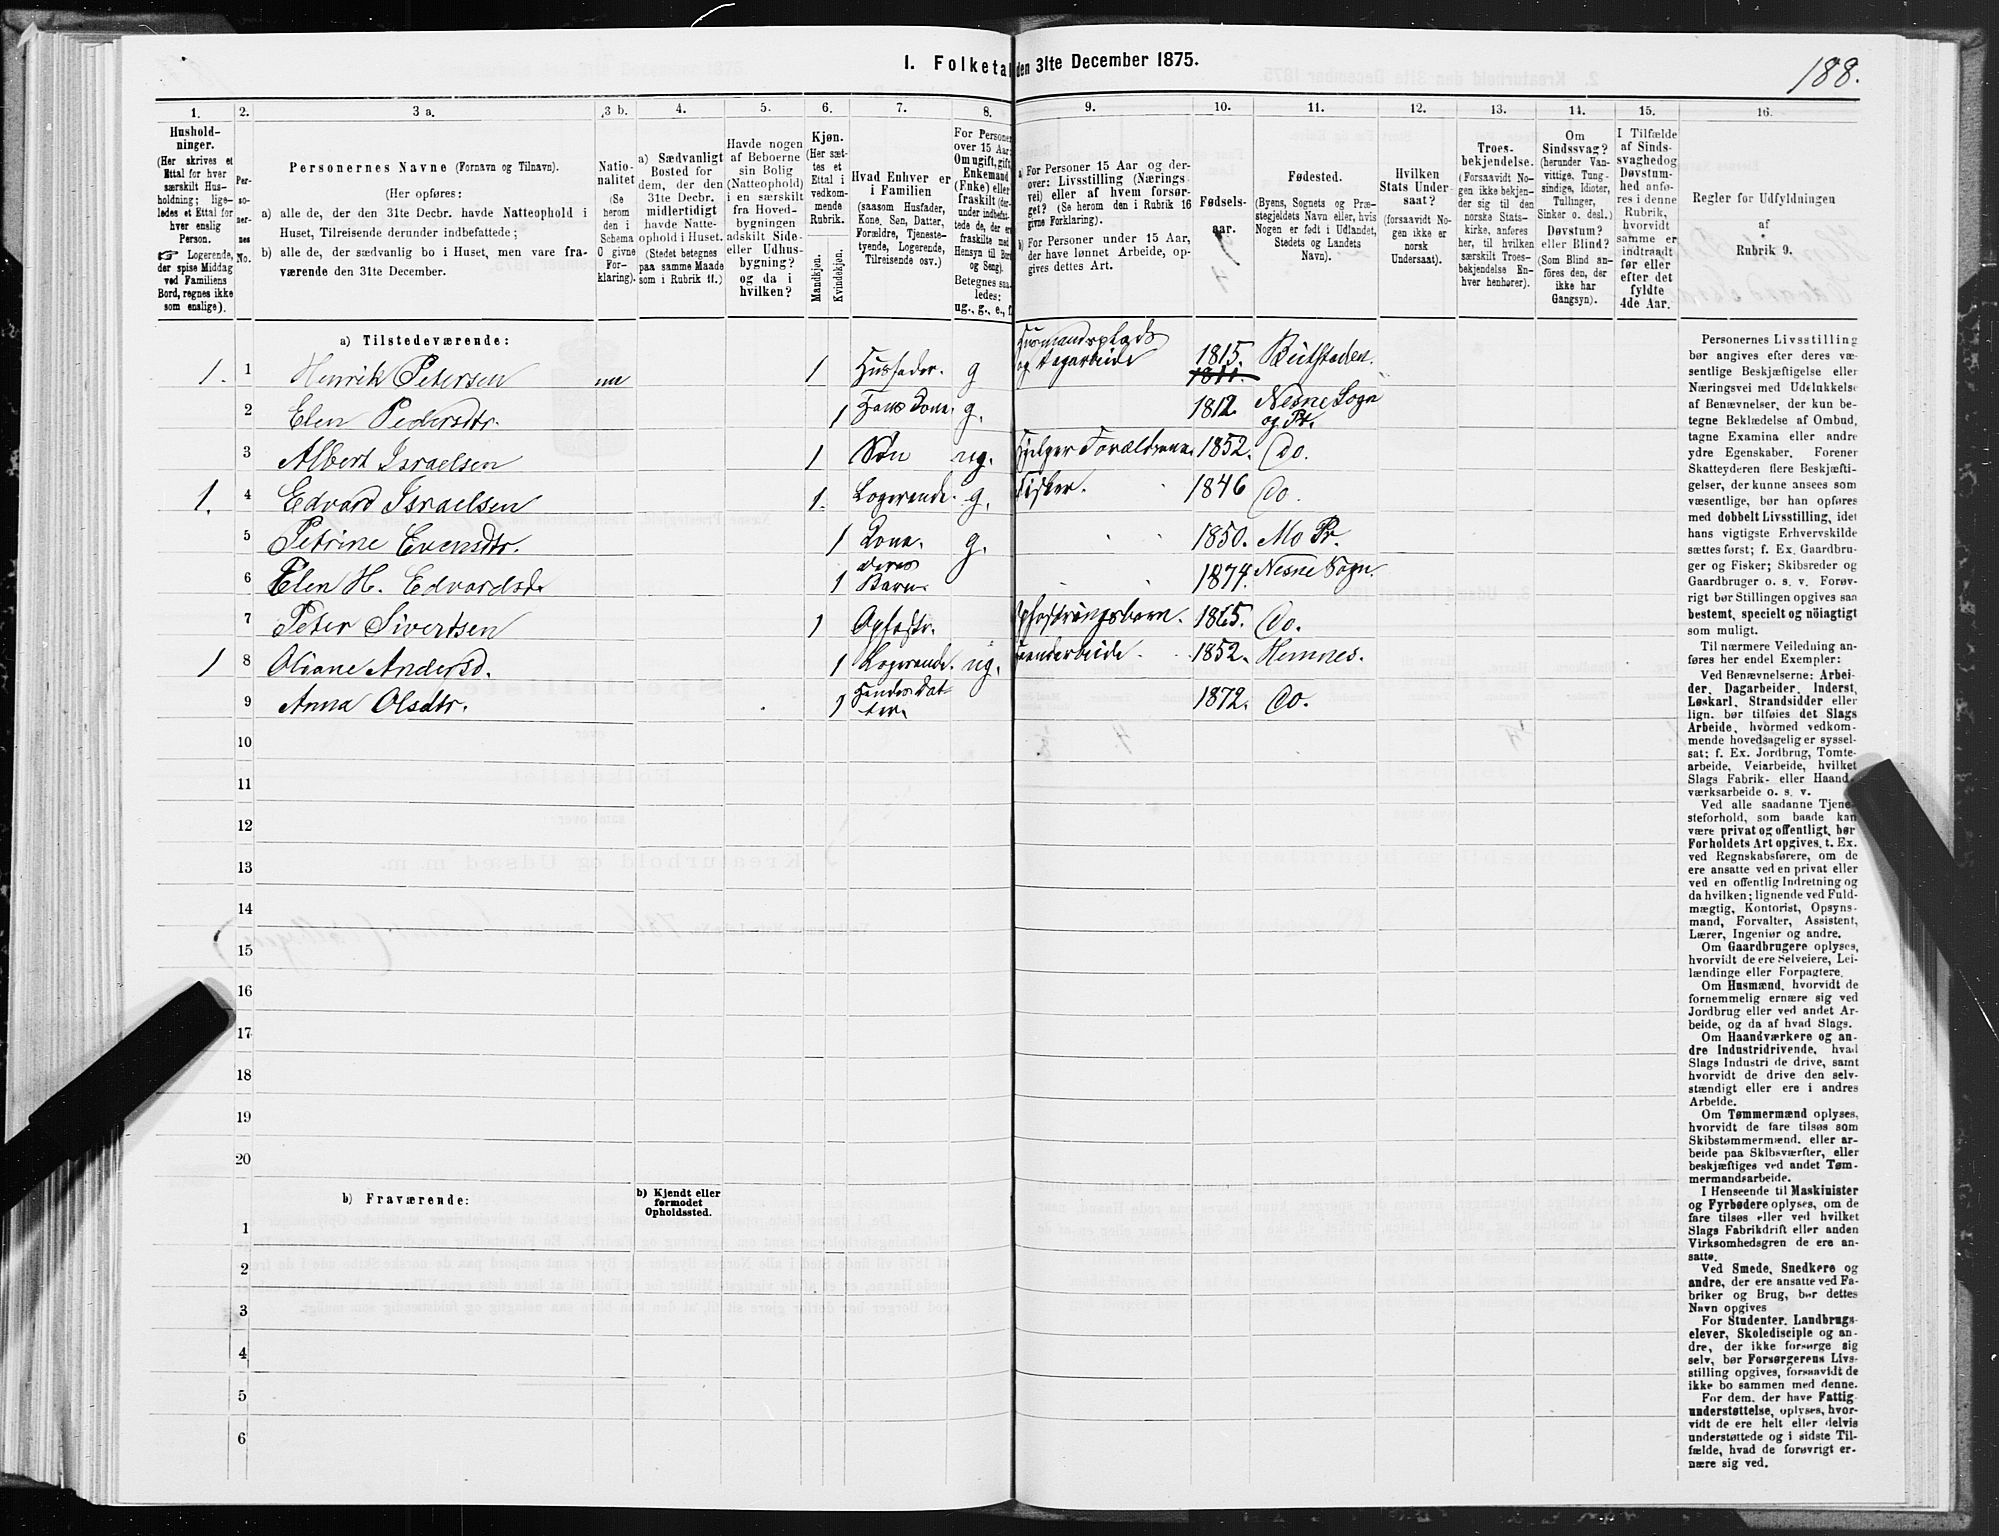 I. Folketal den 31te December 1875.
188.
1. 2. 3 a. 3 b. 4. 5. 6. 7. 8. 9. 10. 11. 12. 13. 14. 15. 16.
Hushold-
ninger.
(Her skrives et
Ettal for hver
særskilt Hus-
holdning; lige-
ledes et Ettal for
hver enslig
Person.
☞ Logerende,
der spise Middag
ved Familiens
Bord, regnes ikke
som enslige).
Per-
so-
ner-
nes
No.
Personernes Navne (Fornavn og Tilnavn).
(Her opføres:
a) alle de, der den 31te Decbr. havde Natteophold i
Huset, Tilreisende derunder indbefattede;
b) alle de, der sædvanlig bo i Huset, men vare fra-
værende den 31te December.
Natio-
nalitet
(Se
herom
den i
Schema
O givne
For-
klaring).
a) Sædvanligt
Bosted for
dem, der den
31te Decbr.
midlertidigt
havde Natte-
ophold i Huset.
(Stedet betegnes
paa samme Maade
som i Rubrik 11.)
Havde nogen
af Beboerne
sin Bolig
(Natteophold)
i en særskilt
fra Hoved-
bygningen
adskilt Side-
eller Udhus-
bygning?
og da i
hvilken?
Kjøn.
(Her sæt-
tes et
Ettal i
vedkom-
mende
Rubrik.
Mandkjøn.
Kvindekjøn.
Hvad Enhver er
i Familien
(saasom Husfader,
Kone, Søn, Datter,
Forældre, Tjeneste-
tyende, Logerende,
Tilreisende osv.)
For Personer
over 15 Aar:
Om ugift, gift,
Enkemand
(Enke) eller
fraskilt (der-
under indbefat-
tede de, der ere
fraskilte med
Hensyn til Bord
og Seng).
Betegnes saa-
ledes:
ug., g., e., f.
a) For Personer 15 Aar og der-
over: Livsstilling (Nærings-
vei) eller af hvem forsør-
get? (Se herom den i Rubrik 16
givne Forklaring).
b) For Personer under 15 Aar,
der have lønnet Arbeide, op-
gives dettes Art.
Fødsels-
aar.
Fødested.
(Byens, Sognets og Præ-
stegjeldets Navn eller, hvis
Nogen er født i Udlandet,
Stedets og Landets
Navn).
Hvilken
Stats Under-
saat?
(forsaavidt No-
gen ikke er
norsk
Undersaat).
Troes-
bekjendelse.
(Forsaavidt No-
gen ikke bekjen-
der sig til den
norske Stats-
kirke, anføres
her, til hvilken
særskilt Troes-
bekjendelse En-
hver henhører).
Om
Sindssvag?
(herunder Van-
vittige, Tung-
sindige, Idioter,
Tullinger,
Sinker o. desl.)
Døvstum?
eller Blind?
(Som Blind an-
føres den, der
ikke har
Gangsyn).
I Tilfælde
af Sinds-
svaghed og
Døvstum-
hed anfø-
res i denne
Rubrik,
hvorvidt
samme er
indtraadt
før eller
efter det
fyldte
4de Aar.
Regler for Udfyldningen
af
Rubrik 9.
a) Tilstedeværende:
1. 1 Henrik Petersen nn 1 Husfader. g Husmandsplads og Dagarbeide 1815. 1811. Beitstaden.
2 Elen Pedersdtr. 1 Hans Kone. g. 1812. Nesne Sogn og Pr.
3 Albert Israelsen 1 Søn ug. Hjelper Forældrene. 1852. Do.
1. 4 Edvard Israelsen 1. Logerende. g. Fisker. 1846 Do.
5 Petrine Evensdtr. 1 Kone. g. 1850. Mo Pr.
6 Elen H. Edvardsd. 1 deres Barn. 1874. Nesne Sogn.
7 Peter Sivertsen 1 Opfostr. Opfostringsbarn. 1865. Do.
1 8 Oliane Andersd. 1 Logerende. ug. Haandarbeide. 1852. Hemnes.
9 Anna Olsdtr. 1 Hendes Dat-
ter. 1872. Do.
10
11
12
13
14
15
16
17
18
19
20
b) Fraværende:
b) Kjendt eller
formodet
Opholdssted.
1
2
3
4
5
6
Personernes Livsstilling
bør angives efter deres væ-
sentlige Beskjæftigelse eller
Næringsvei med Udelukkelse
af Benævnelser, der kun be-
tegne Beklædelse af Ombud,
tagne Examina eller andre
ydre Egenskaber. Forener
Skatteyderen flere Beskjæfti-
gelser, der kunne ansees som
væsentlige, bør han opføres
med dobbelt Livsstilling, idet
hans vigtigste Erhvervskilde
sættes først; f. Ex. Gaardbru-
ger og Fisker; Skibsreder og
Gaardbruger o. s. v. Forøv-
rigt bør Stillingen opgives saa
bestemt, specielt og nöiagtigt
som muligt.
Til nærmere Veiledning an-
føres her endel Exempler:
Ved Benævnelserne: Arbei-
der, Dagarbeider, Inderst,
Løskarl, Strandsidder eller
lign. bør tilføies det Slags
Arbeide, hvormed vedkom-
mende hovedsagelig er syssel-
sat; f. Ex. Jordbrug, Tomte-
arbeide, Veiarbeide, hvilket
Slags Fabrik- eller Haand-
værksarbeide o. s. v.
Ved alle saadanne Tjene-
steforhold, som baade kan
være privat og offentligt, bør
Forholdets Art opgives, t. Ex.
ved Regnskabsførere, om de
ere ansatte ved en privat eller
ved en offentlig Indretning og
da hvilken; lignende ved Fuld-
mægtig, Kontorist, Opsyns-
mand, Forvalter, Assistent,
Lærer, Ingeniør og andre.
Om Gaardbrugere oplyses,
hvorvidt de ere Selveiere, Lei-
lændinge eller Forpagtere.
Om Husmænd, hvorvidt de
fornemmelig ernære sig ved
Jordbrug eller ved andet Ar-
beide, og da af hvad Slags.
Om Haandværkere og an-
dre Industridrivende, hvad
Slags Industri de drive, samt
hvorvidt de drive den selv-
stændigt eller ere i andres
Arbeide.
Om Tømmermænd oplyses,
hvorvidt de fare tilsøs som
Skibstømmermænd, eller ar-
beide paa Skibsværfter, eller
beskjæftiges ved andet Tøm-
mermandsarbeide.
I Henseende til Maskinister
og Fyrbødere oplyses, om de
fare tilsøs eller ved hvilket
Slags Fabrikdrift eller anden
Virksomhedsgren de ere an-
satte.
Ved Smede, Snedkere og
andre, der ere ansatte ved Fa-
briker og Brug, bør dettes
Navn opgives
For Studenter, Landbrugs-
elever, Skoledisciple og an-
dre, der ikke forsørge sig
selv, bør Forsørgerens Livs-
stilling opgives, forsaavidt de
ikke bo sammen med denne.
For dem, der have Fattig-
understøttelse, oplyses, hvor-
vidt de ere helt eller delvis
understøttede og i sidste Til-
fælde, hvad de forøvrigt er-
nære sig ved.